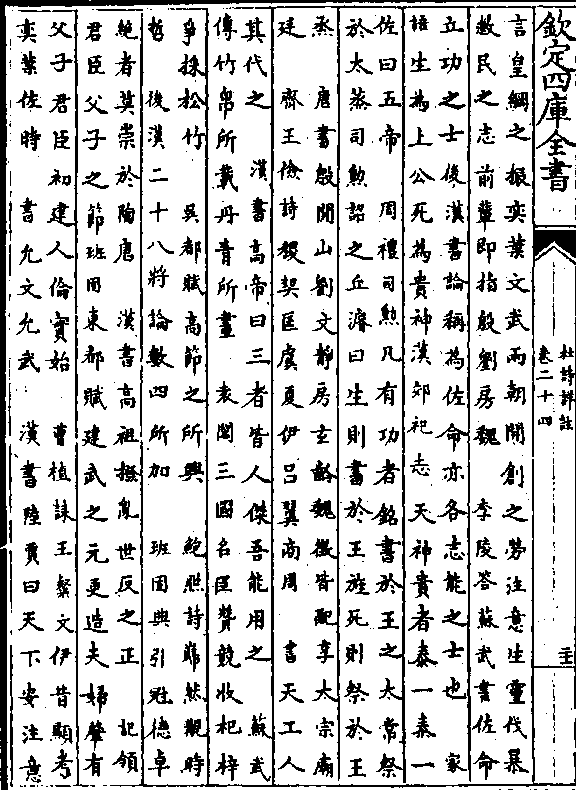 欽定四庫全書
杜詩詳註
卷二十四
言皇綱之振奕葉文武兩朝開創之勞注意生靈伐暴
救民之志前輩即指殷劉房魏　李陵答蘇武書佐命
立功之士後漢書論稱為佐命亦各志能之士也　家
語生為上公死為貴神漢郊祀志天神貴者泰一泰一
佐曰五帝　周禮司勲凡有功者銘書於王之太常祭
於太蒸司勲詔之丘濬曰生則書於王旌死則祭於王
烝　唐書殷開山劉文靜房玄齡魏徵皆配享太宗廟
廷　齊王儉詩稷契匡虞夏伊吕翼商周　書天工人
其代之　漢書高帝曰三者皆人傑吾能用之　蘇武
傳竹帛所載丹青所畫　袁閎三國名臣贊競收杞梓
爭採松竹　吳都賦高節之所興　鮑照詩肅然觀時
哲　後漢二十八將論數四所加　班固典引冠德卓
絶者莫崇於陶唐　漢書高祖撥亂世反之正　記領
君臣父子之節班固東都賦建武之元更造夫婦肇有
父子君臣初建人倫實始　曹植誄王粲文伊昔顯考
奕葉佐時　書允文允武　漢書陸賈曰天下安注意